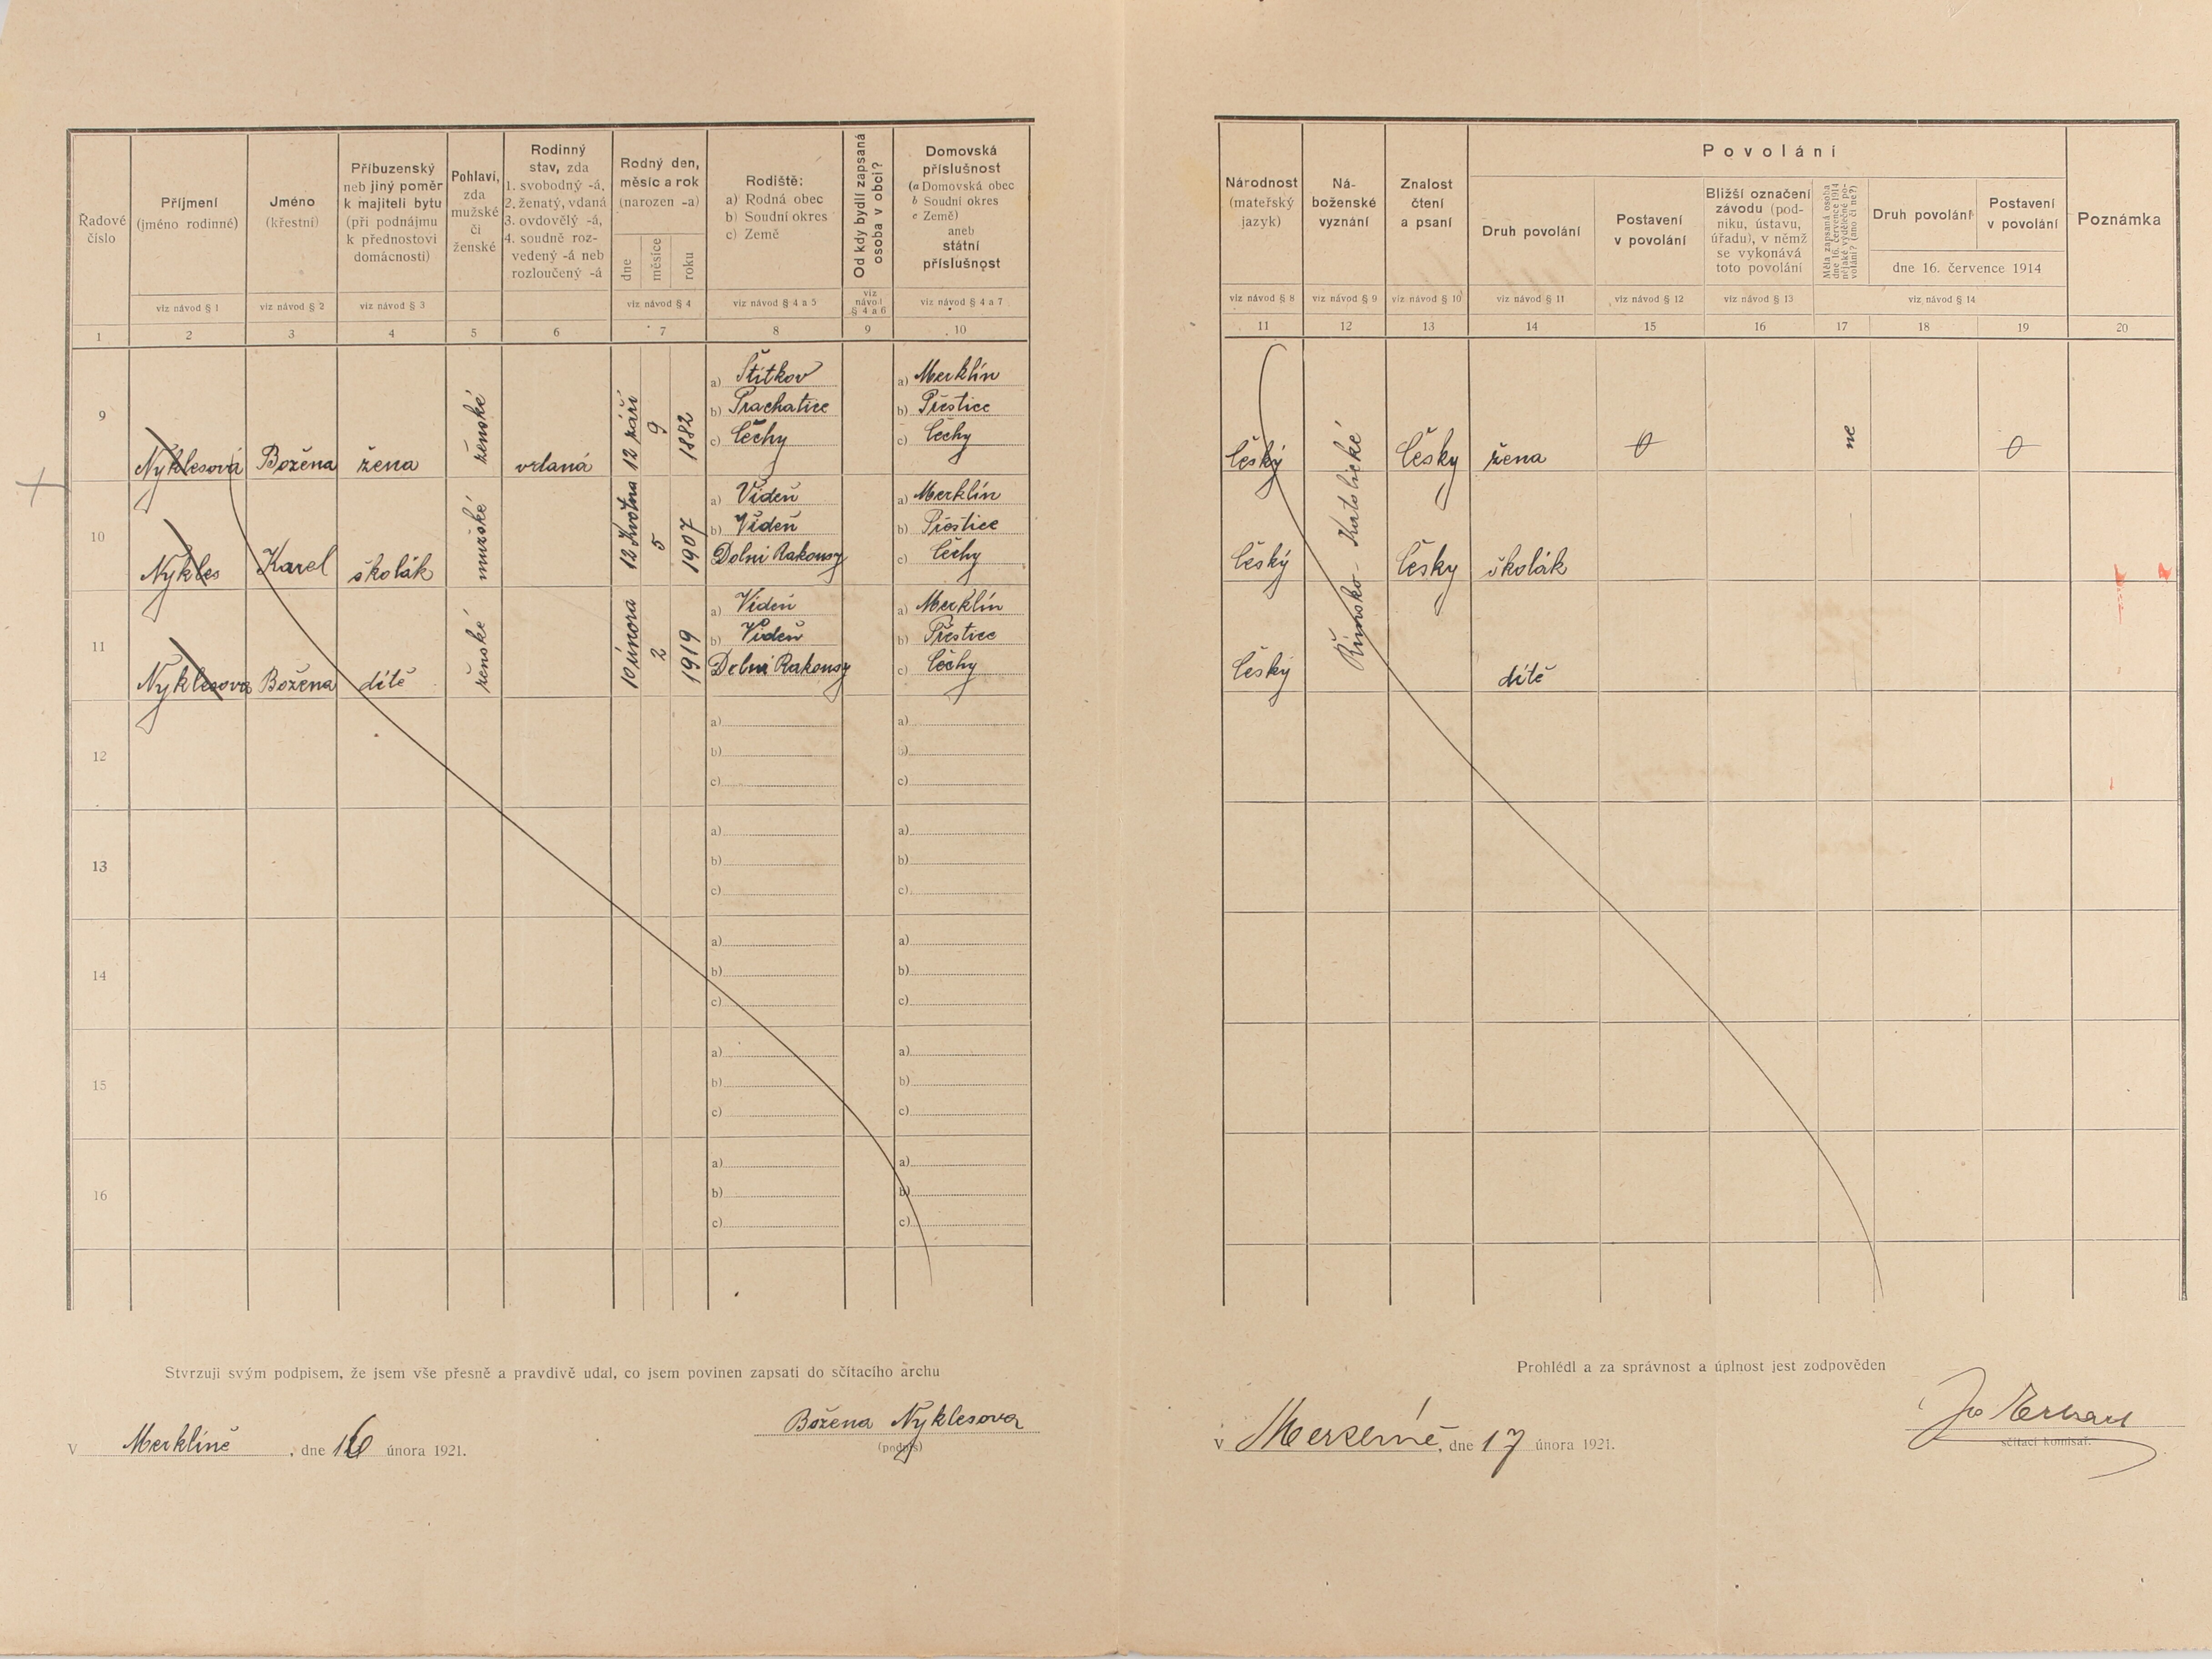 Řadové číslo
Příjmení
(jméno rodinné)
viz návod § 1
Jméno
(křestní)
viz návod § 2
Příbuzenský
neb jiný poměr
k majiteli bytu
(při podnájmu
k přednostovi
domácnosti)
viz návod § 3
Pohlaví,
zda
mužské
či
ženské
Rodinný
stav, zda
1. svobodný -á,
2. ženatý, vdaná
3. ovdovělý -á,
4. soudně roz-
vedený -á neb
rozloučený -á
Rodný den,
měsíc a rok
(narozen -a)
dne
měsíce
roku
viz návod § 4
Rodiště:
a) Rodná obec
b) Soudní okres
c) Země
viz návod § 4 a 5
Od kdy bydlí zapsaná
osoba v obci?
viz
návod
§ 4 a 6
Domovská
příslušnost
(a Domovská obec
b Soudní okres
c Země)
aneb
státní
příslušnost
viz návod § 4 a 7
1 2 3 4 5 6 7 8 9 10
9 Nyklesová Božena žena ženské vdaná 12 září 9 1882
a) Štítkov a) Merklín
b) Prachatice b) Přestice
c) Čechy c) Čechy
10 Nykles Karel školák mužské 12 Května 5 1907
a) Vídeň a) Merklín
b) Vídeň b) Přestice
Dolní Rakousy c) Čechy
11 Nyklesova Božena dítě ženské 10 února 2 1919
a) Vídeň a) Merklín
b) Vídeň b) Přestice
Dolní Rakousy c) Čechy
12
a) a)
b) b)
c) c)
13
a) a)
b) b)
c) c)
14
a) a)
b) b)
c) c)
15
a) a)
b) b)
c) c)
16
a) a)
b) b)
c) c)
Stvrzuji svým podpisem, že jsem vše přesně a pravdivě udal, co jsem povinen zapsati do sčítacího archu
Božena Nyklesova
(podpis)
V Merklíně, dne 16 února 1921.
Národnost
(mateřský
jazyk)
viz návod § 8
Ná-
boženské
vyznání
viz návod § 9
Znalost
čtení
a psaní
viz návod § 10
Povolání
Druh povolání
viz návod § 11
Postavení
v povolání
viz návod § 12
Bližší označení
závodu (pod-
niku, ústavu,
úřadu), v němž
se vykonává
toto povolání
viz návod § 13
Měla zapsaná osoba
dne 16. července 1914
nějaké výdělečné po-
volání? (ano či ne?)
Druh povolání
Postavení
v povolání
dne 16. července 1914
viz návod § 14
Poznámka
11 12 13 14 15 16 17 18 19 20
Český Česky žena 0 ne 0
Římsko-Katolické
Český Česky školák
Český dítě
Prohlédl a za správnost a úplnost jest zodpověden
sčítací komisař.
V Merklíně, dne 17 února 1921.